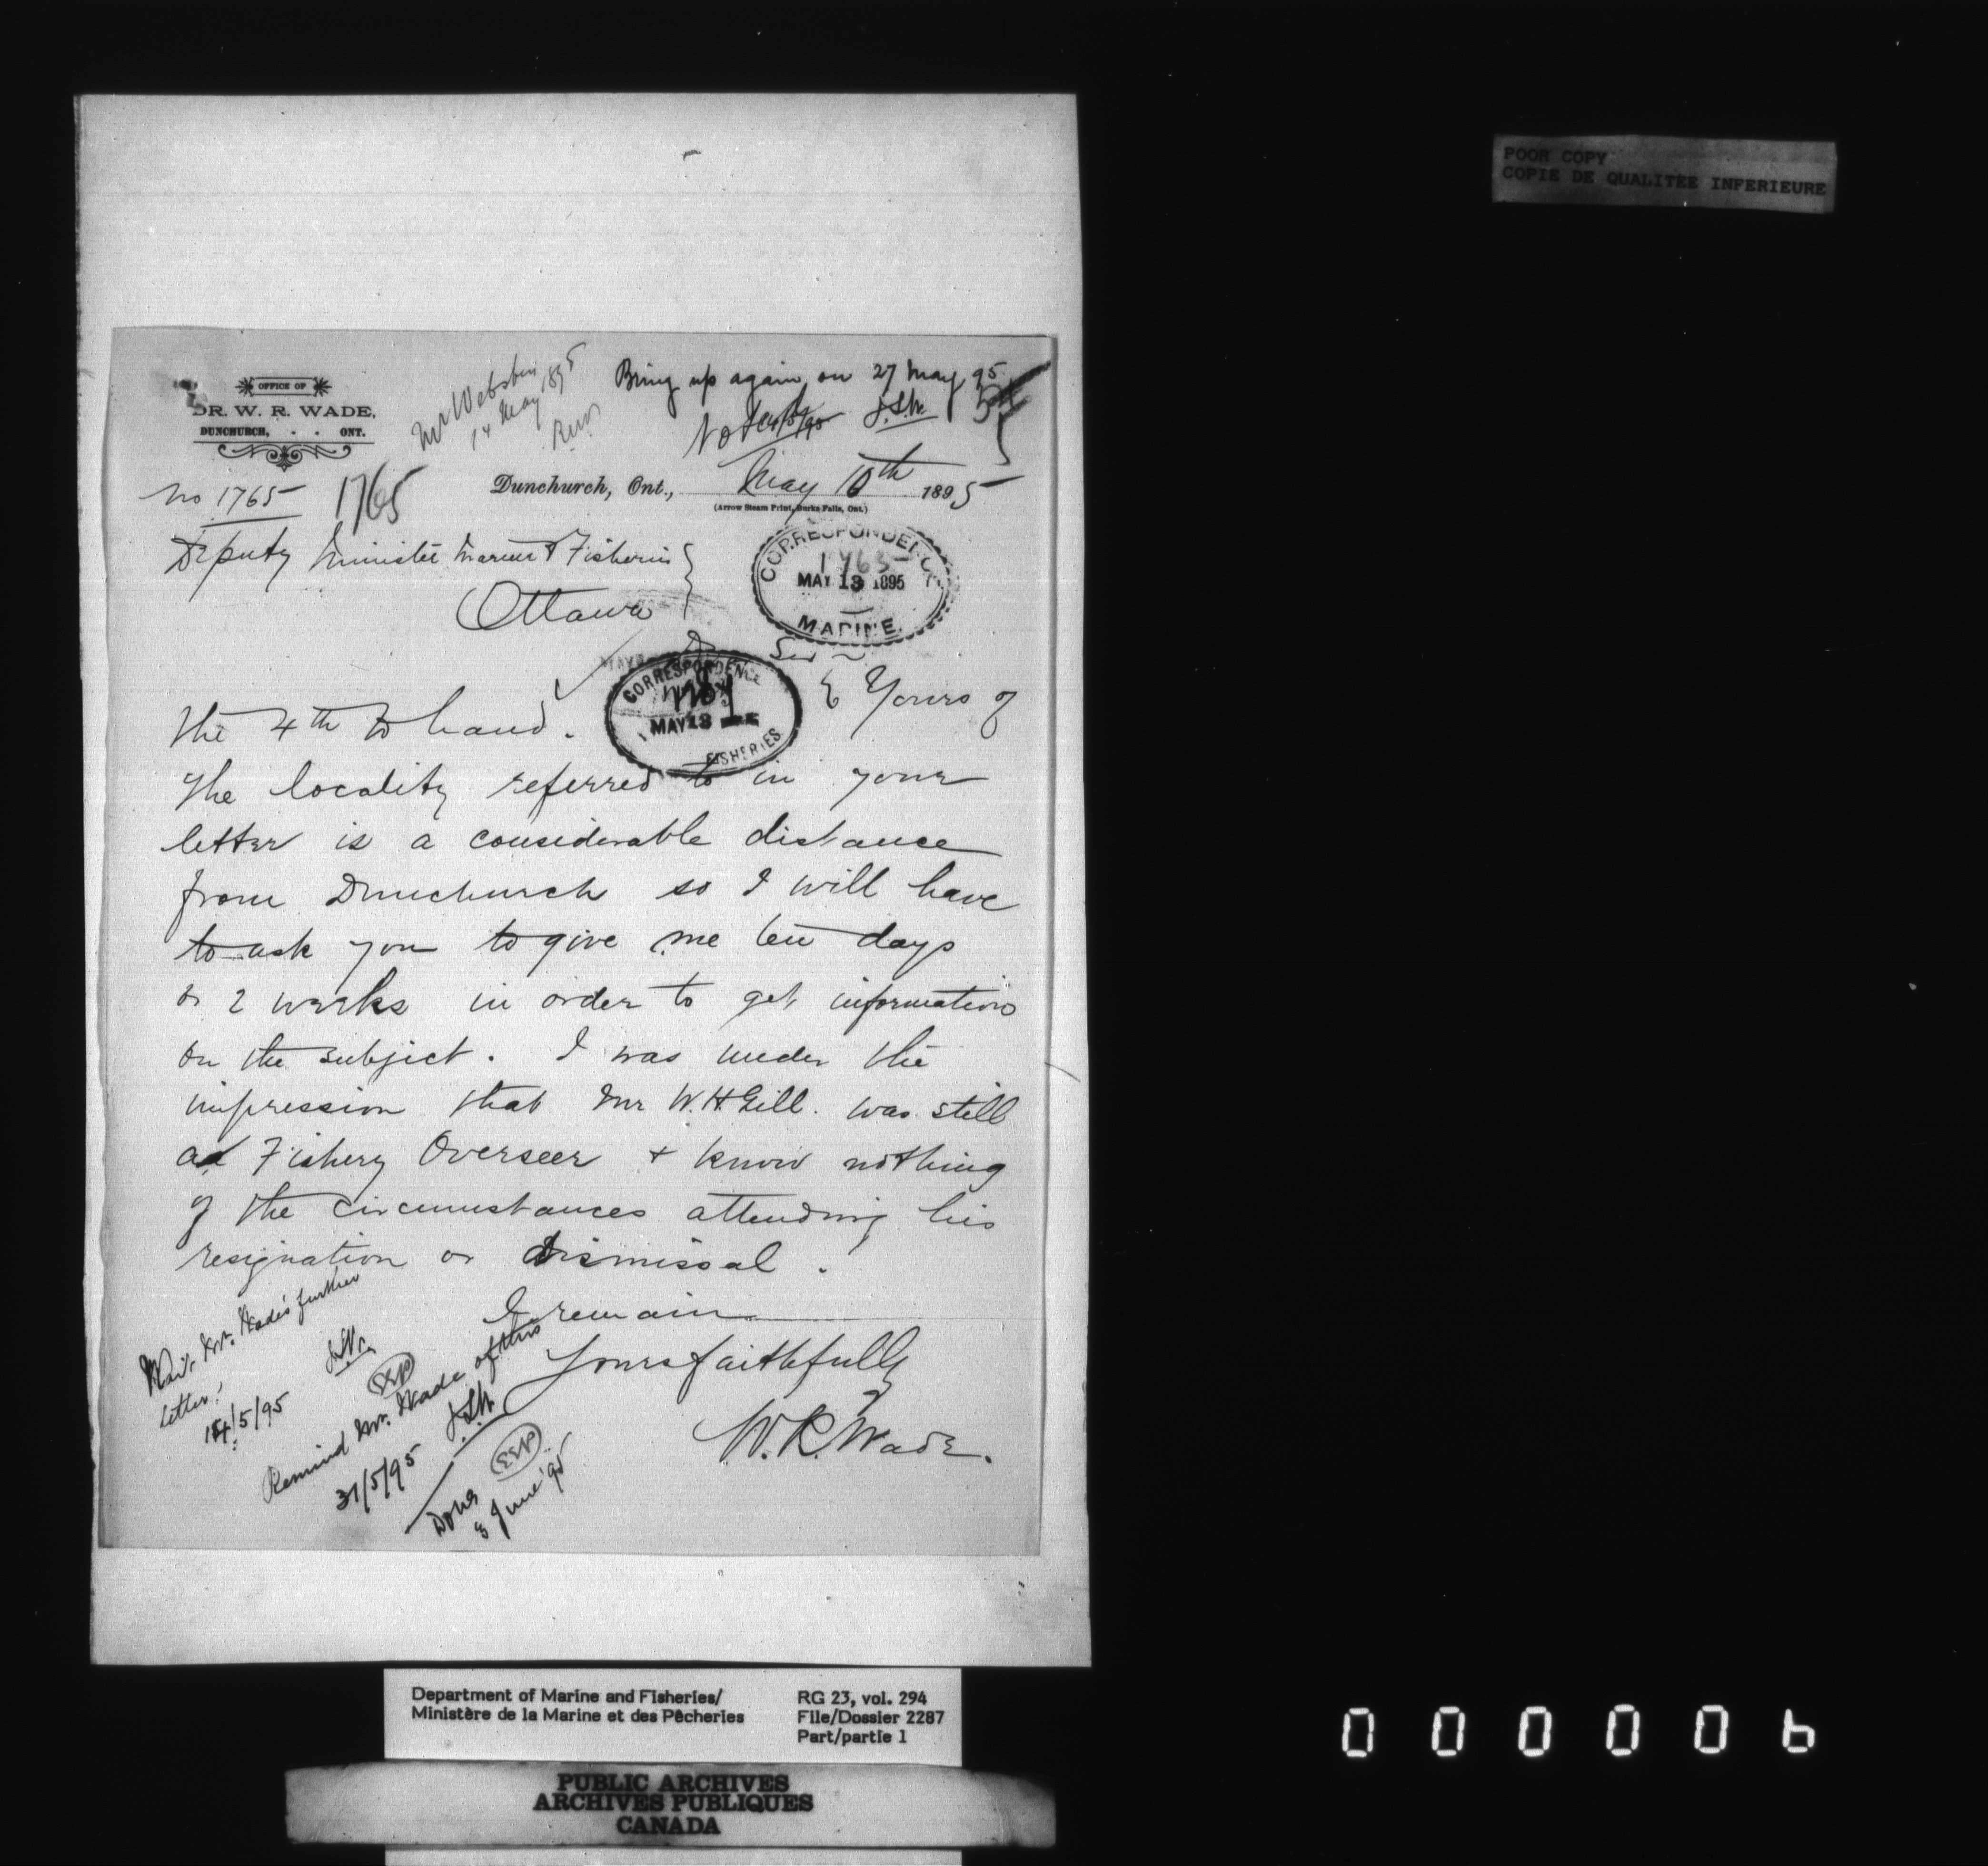 POOR COPY
COPIE DE QUALITEE INFERIEURE
OFFICE OF
DR. W. R. WADE,
DUNCHURCH, - - ONT.
Mr Webster
14 May 1895
Bring up again on 27 May 95.
Noted
J.S.W.
No 1765
1765
Dunchurch, Ont., May 10th 1895
(Arrow Steam Print, Burks Falls, Ont.)
Deputy Minister Marine & Fisheries
Ottawa
CORRESPONDENCE
1765
MAY 13 1895
MARINE
Sir
CORRESPONDENCE
MAY 13
FISHERIES
Yours of
the 4th to hand.
The locality referred to in your
letter is a considerable distance
from Dunchurch so I will have
to ask you to give me ten days
or 2 weeks in order to get information
on the subject. I was under the
impression that Mr W. H Gill. was still
Fishery Overseer + know nothing
of the circumstances attending his
resignation or dismissal.
I remain
Yours faithfully
W. R. Wade.
Wait Mr. Wade's further
letter.
14/5/95
Remind Mr. Wade of this
31/5/95
Done
3 June '95
Department of Marine and Fisheries/
Ministère de la Marine et des Pêcheries
RG 23, vol. 294
File/Dossier 2287
Part/partie 1
PUBLIC ARCHIVES
ARCHIVES PUBLIQUES
CANADA
000006